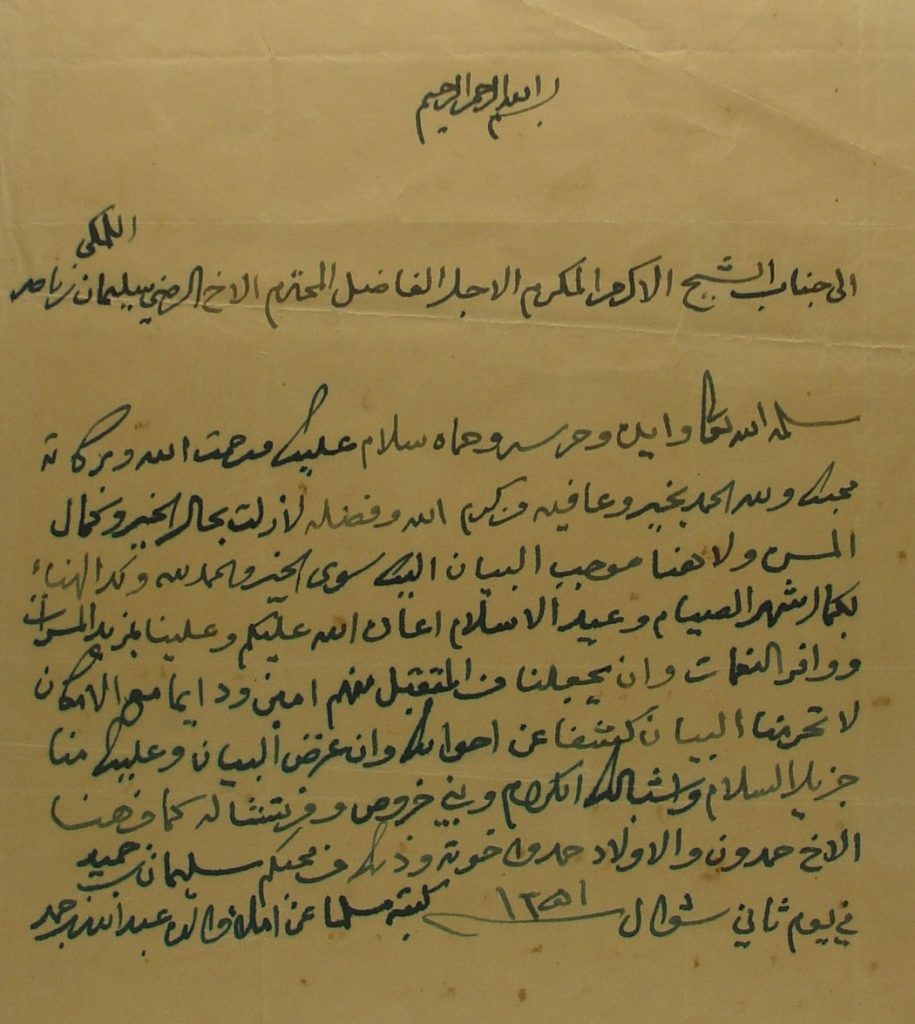 بسم الله الرحمن الرحيم
اللمكي
الى جناب الشيخ الاكرم المكرم الاجل الفاضل المحترم الاخ الرضي سليمان بن ناصر
سلمه الله تعالى وابقاه وحرسه وحماه سلام عليك ورحمت الله وبركاته
محبك ولله الحمد بخير وعافيه من كرم الله وفضله لازلت بحال الخير وكمال
المسره ولا هنا موجب البيان اليك سوى الخير والحمد لله ولك الهناء
بكمال شهر الصيام وعيد الاسلام اعاده الله عليكم وعلينا بمزيد المسرات
ووافر النعمات وان يجعلنا من المتقبل منهم امين ودايما مع الامكان
لا تحرمنا البيان كشفا عن احوالك وان عرض البيان وعليك منا
جزيل السلام واشبالك الكرام وبني خروص كما من هنا
الاخ حمدون والاولاد حمد واخوته وذلك من محبكم سليمان بن حميد
في يوم ثاني شوال ١٣٥١ كتبته مسلما عن املاء والده عبدالله بن حمد